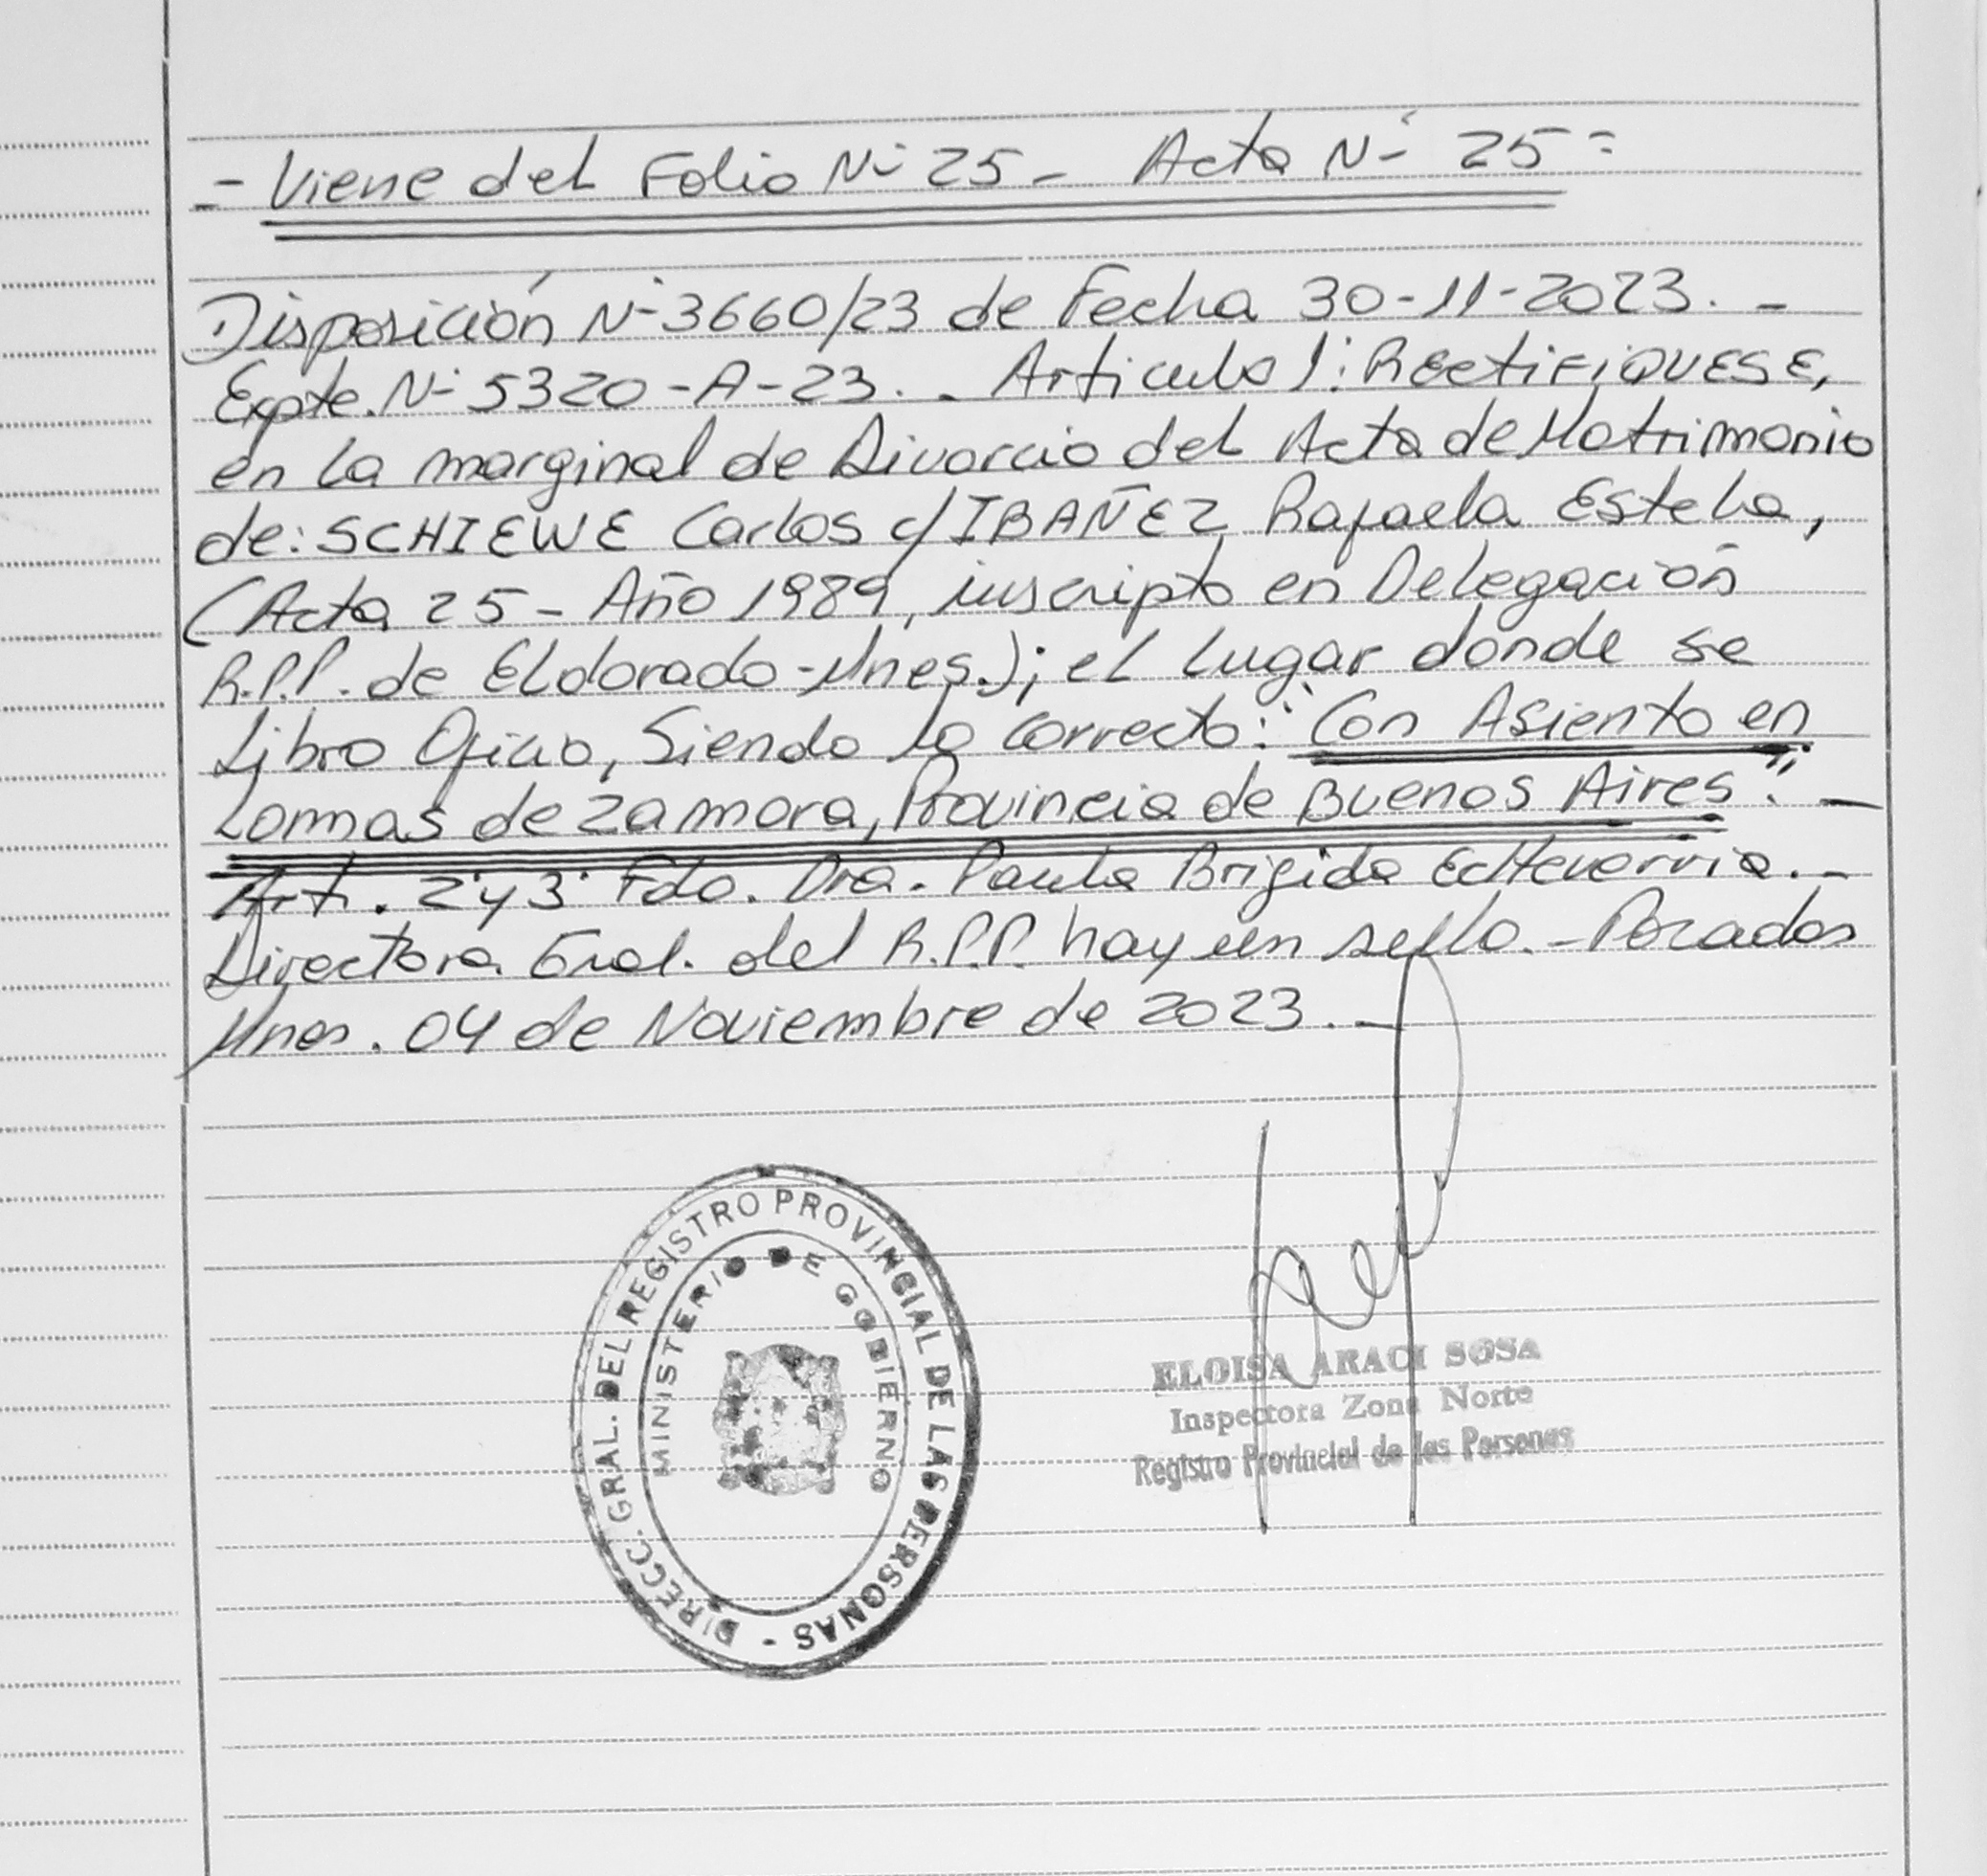 - Viene del Folio Nº 25 - Acta Nº 25 =
Disposición Nº 3660/23 de Fecha 30-11-2023. -
Expte. Nº 5320-A-23. - Articulo 1: RECTIFIQUESE,
en la marginal de Divorcio del Acta de Matrimonio
de: SCHIEWE Carlos c/ IBAÑEZ Rafaela Estela,
(Acta 25 - Año 1989, inscripto en Delegación
R.P.P. de Eldorado - Mnes.); el lugar donde se
Libro Oficio, Siendo lo correcto: "Con Asiento en
Lomas de Zamora, Provincia de Buenos Aires". -
Art. 2º y 3º Fdo. Dra. Paula Brigida Echeverria. -
Directora Gral. del R.P.P. hay un sello. - Posadas
Mnes. 04 de Noviembre de 2023. -
DIRECC. GRAL. DEL REGISTRO PROVINCIAL DE LAS PERSONAS -
MINISTERIO DE GOBIERNO
ELOISA ARACI SOSA
Inspectora Zona Norte
Registro Provincial de las Personas